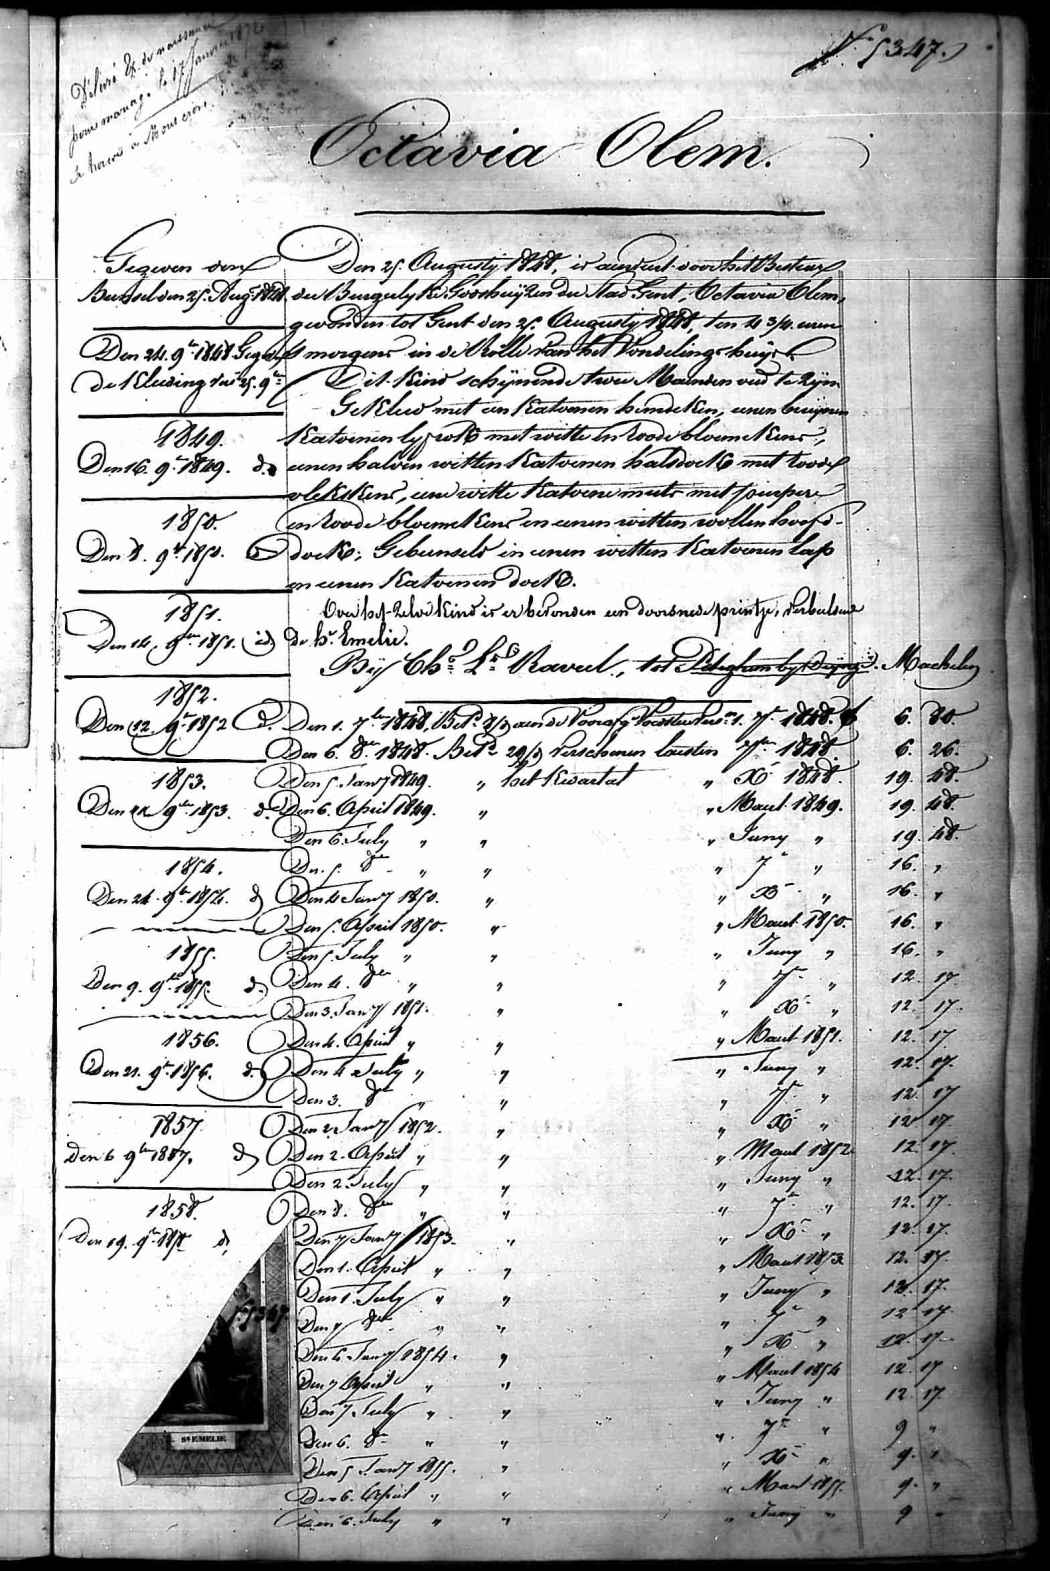 Délivré Ex. de naissance
pour mariage le 17 Janvier 1872
à Mouscron.
N.º 5347.
Octavia Olem.
Gegeven een
Bunsel den 25. Aug. 1848.
Den 24. 9.bre 1848 Gegeven
de Kleeding
1849.
Den 16. 9.bre 1849. d.o
1850.
Den 8. 9.bre 1850. d.o
1851.
Den 14. 9.bre 1851. id.
1852.
Den 12. 9.bre 1852 d.
1853.
Den 9.bre 1853. d.
1854.
Den 24. 9.bre 1854. d.
1855.
Den 9. 9.bre 1855. d.
1856.
Den 21. 9.bre 1856. d.
1857.
Den 6 9.bre 1857. d.
1858.
Den 19. 9.bre 1858 d.
Den 25. Augusty 1848, is aenveird door het Bestier
der Burgerlyke Godshuijzen der stad Gent, Octavia Olem,
gevonden tot Gent den 25. Augusty 1848, ten 4 3/4 uren
's morgens in de Rolle van het Vondelingshuijs.
Dit Kind schijnende twee Maenden oud te zijn
Gekleed met een Katoenen hemdeken, eenen bruijnen
Katoenen lijfrok met witte en roode bloemekens,
eenen halven witten Katoenen halsdoek met roode
vlekskens, eene witte Katoene muts met purpere
en roode bloemekens en eenen witten wollen hoofd-
doek; Gebunseld in eenen witten Katoenen lap
en eenen Katoenen doek.
Over het zelve Kind is er bevonden een doorsnede printje, verbeeldende
de H.e Emelie.
Bij Raveel, tot Peteghem by Deynze. Machelen
Den 1. 7.bre 1848. Bet. 8/3 aen de Voorafg. Voedster tot 1. 7.bre 1848. 6. 80.
Den 6. 8.bre 1848. Bet. 29/3 verschenen laesten 7.bre 1848 6. 26.
Den 5. Janry 1849. " het Kwartael " X.bre 1848. 19. 48.
Den 6. April 1849. " " Maert 1849. 19. 48.
Den 6 July " " " Juny " 19. 48.
Den 5. 8.bre " " " 7.bre " 16. "
Den 4 Janry 1850. " " X.bre " 16. "
Den 5. April 1850. " " Maert 1850. 16. "
Den 5. July " " " Juny " 16. "
Den 4. 8.bre " " " 7.bre " 12. 17
Den 3. Janry 1851. " " X.bre " 12. 17.
Den 4. April " " " Maert 1851. 12. 17
Den 4 July " " " Juny " 12. 17.
Den 3. 8.bre " " " 7.bre " 12. 17
Den 2 Janry 1852. " " X.bre " 12 17.
Den 2. April " " " Maert 1852 12. 17.
Den 2 July " " " Juny " 12. 17.
Den 8. 8.bre " " " 7.bre " 12. 17
Den 7 Janry 1853. " " X.bre " 12. 17.
Den 1. April " " " Maert 1853 12. 17.
Den 1. July " " " Juny " 12. 17.
Den 7 8.bre " " " 7.bre " 12 17
Den 6 Janry 1854. " " X.bre " 12. 17.
Den 7 April " " " Maert 1854 12. 17
Den 7 July " " " Juny " 12. 17.
Den 6. 8.bre " " " 7.bre " 9 "
Den 5. Janry 1855. " " X.bre " 9. "
Den 6. April " " " Maert 1855. 9. "
Den 6. July " " " Juny " 9 "
N.º 5347
S.te EMELIE